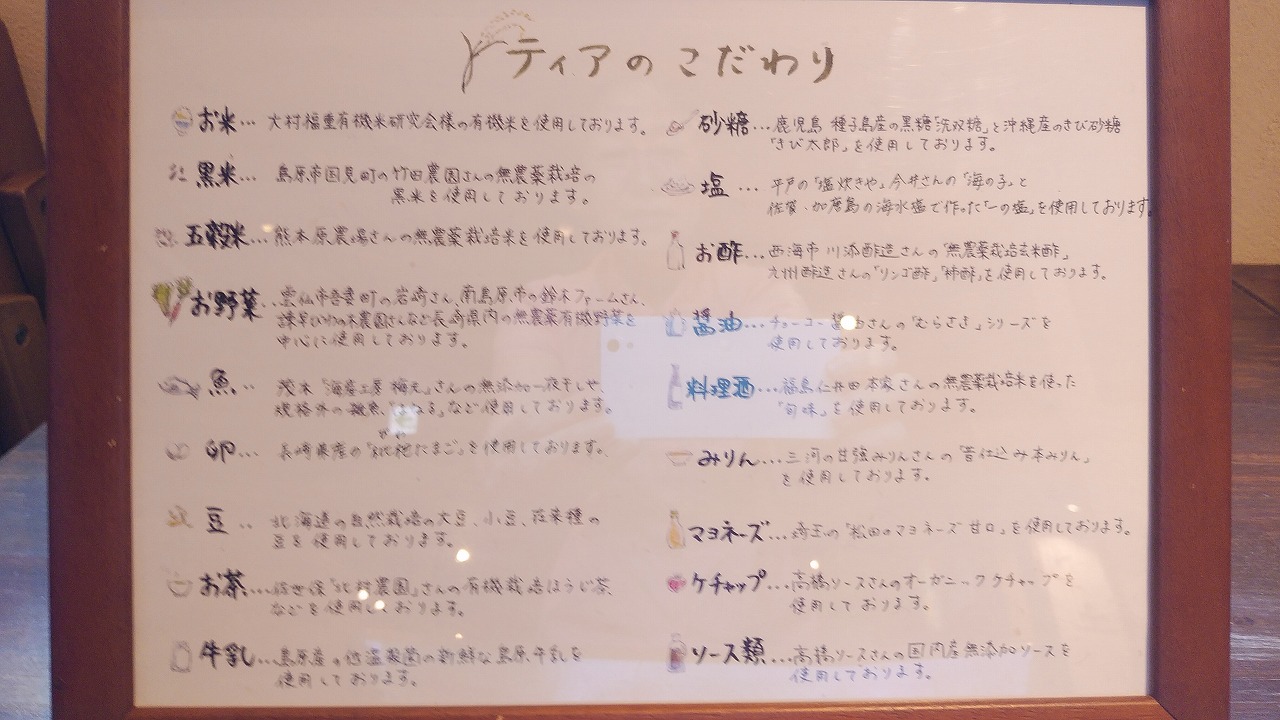 ティアのこだわり
お米… 大村福重有機米研究会様の有機米を使用しております。
黒米… 島原市国見町の竹田農園さんの無農薬栽培の
黒米を使用しております。
五穀米… 熊本原農場さんの無農薬栽培米を使用しております。
お野菜… 雲仙市吾妻町の岩崎さん、南島原市の鈴木ファームさん、
諫早びわの木農園さんなど長崎県内の無農薬有機野菜を
中心に使用しております。
魚… 茂木「海産工房 梅元」さんの無添加一夜干しや、
規格外の雑魚「まねる」など使用しております。
卵… 長崎県産の「枇杷たまご」を使用しております。
豆… 北海道の自然栽培の大豆、小豆、在来種の
豆を使用しております。
お茶… 佐世保「北村農園」さんの有機栽培ほうじ茶、
などを使用しております。
牛乳… 島原産の低温殺菌の新鮮な島原牛乳を
使用しております。
砂糖… 鹿児島 種子島産の黒糖「洗双糖」と沖縄産のきび砂糖
「きび太郎」を使用しております。
塩… 平戸の「塩炊きや」今井さんの「海の子」と
佐賀・加唐島の海水塩で作った「一の塩」を使用しております。
お酢… 西海市 川添酢造さんの「無農薬栽培玄米酢」
九州酢造さんの「リンゴ酢」「柿酢」を使用しております。
醤油… チョーコー醤油さんの「むらさき」シリーズを
使用しております。
料理酒… 福島仁井田本家さんの無農薬栽培米を使った
「旬味」を使用しております。
みりん… 三河の甘強みりんさんの「昔仕込み本みりん」
を使用しております。
マヨネーズ… 埼玉の「松田のマヨネーズ 甘口」を使用しております。
ケチャップ… 高橋ソースさんのオーガニックケチャップを
使用しております。
ソース類… 高橋ソースさんの国内産無添加ソースを
使用しております。